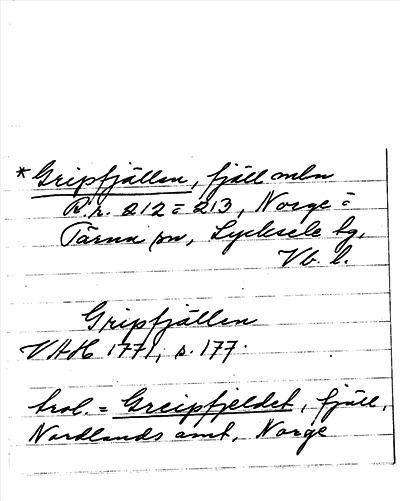 * Gripfjällen, fjäll mbn
R.r. 212 = 213, Norge =
Tärna sn, Lycksele lg,
Vb. l.
Gripfjällen
VAH 1771, s. 177.
trol. = Greipfjeldet, fjäll,
Nordlands amt, Norge